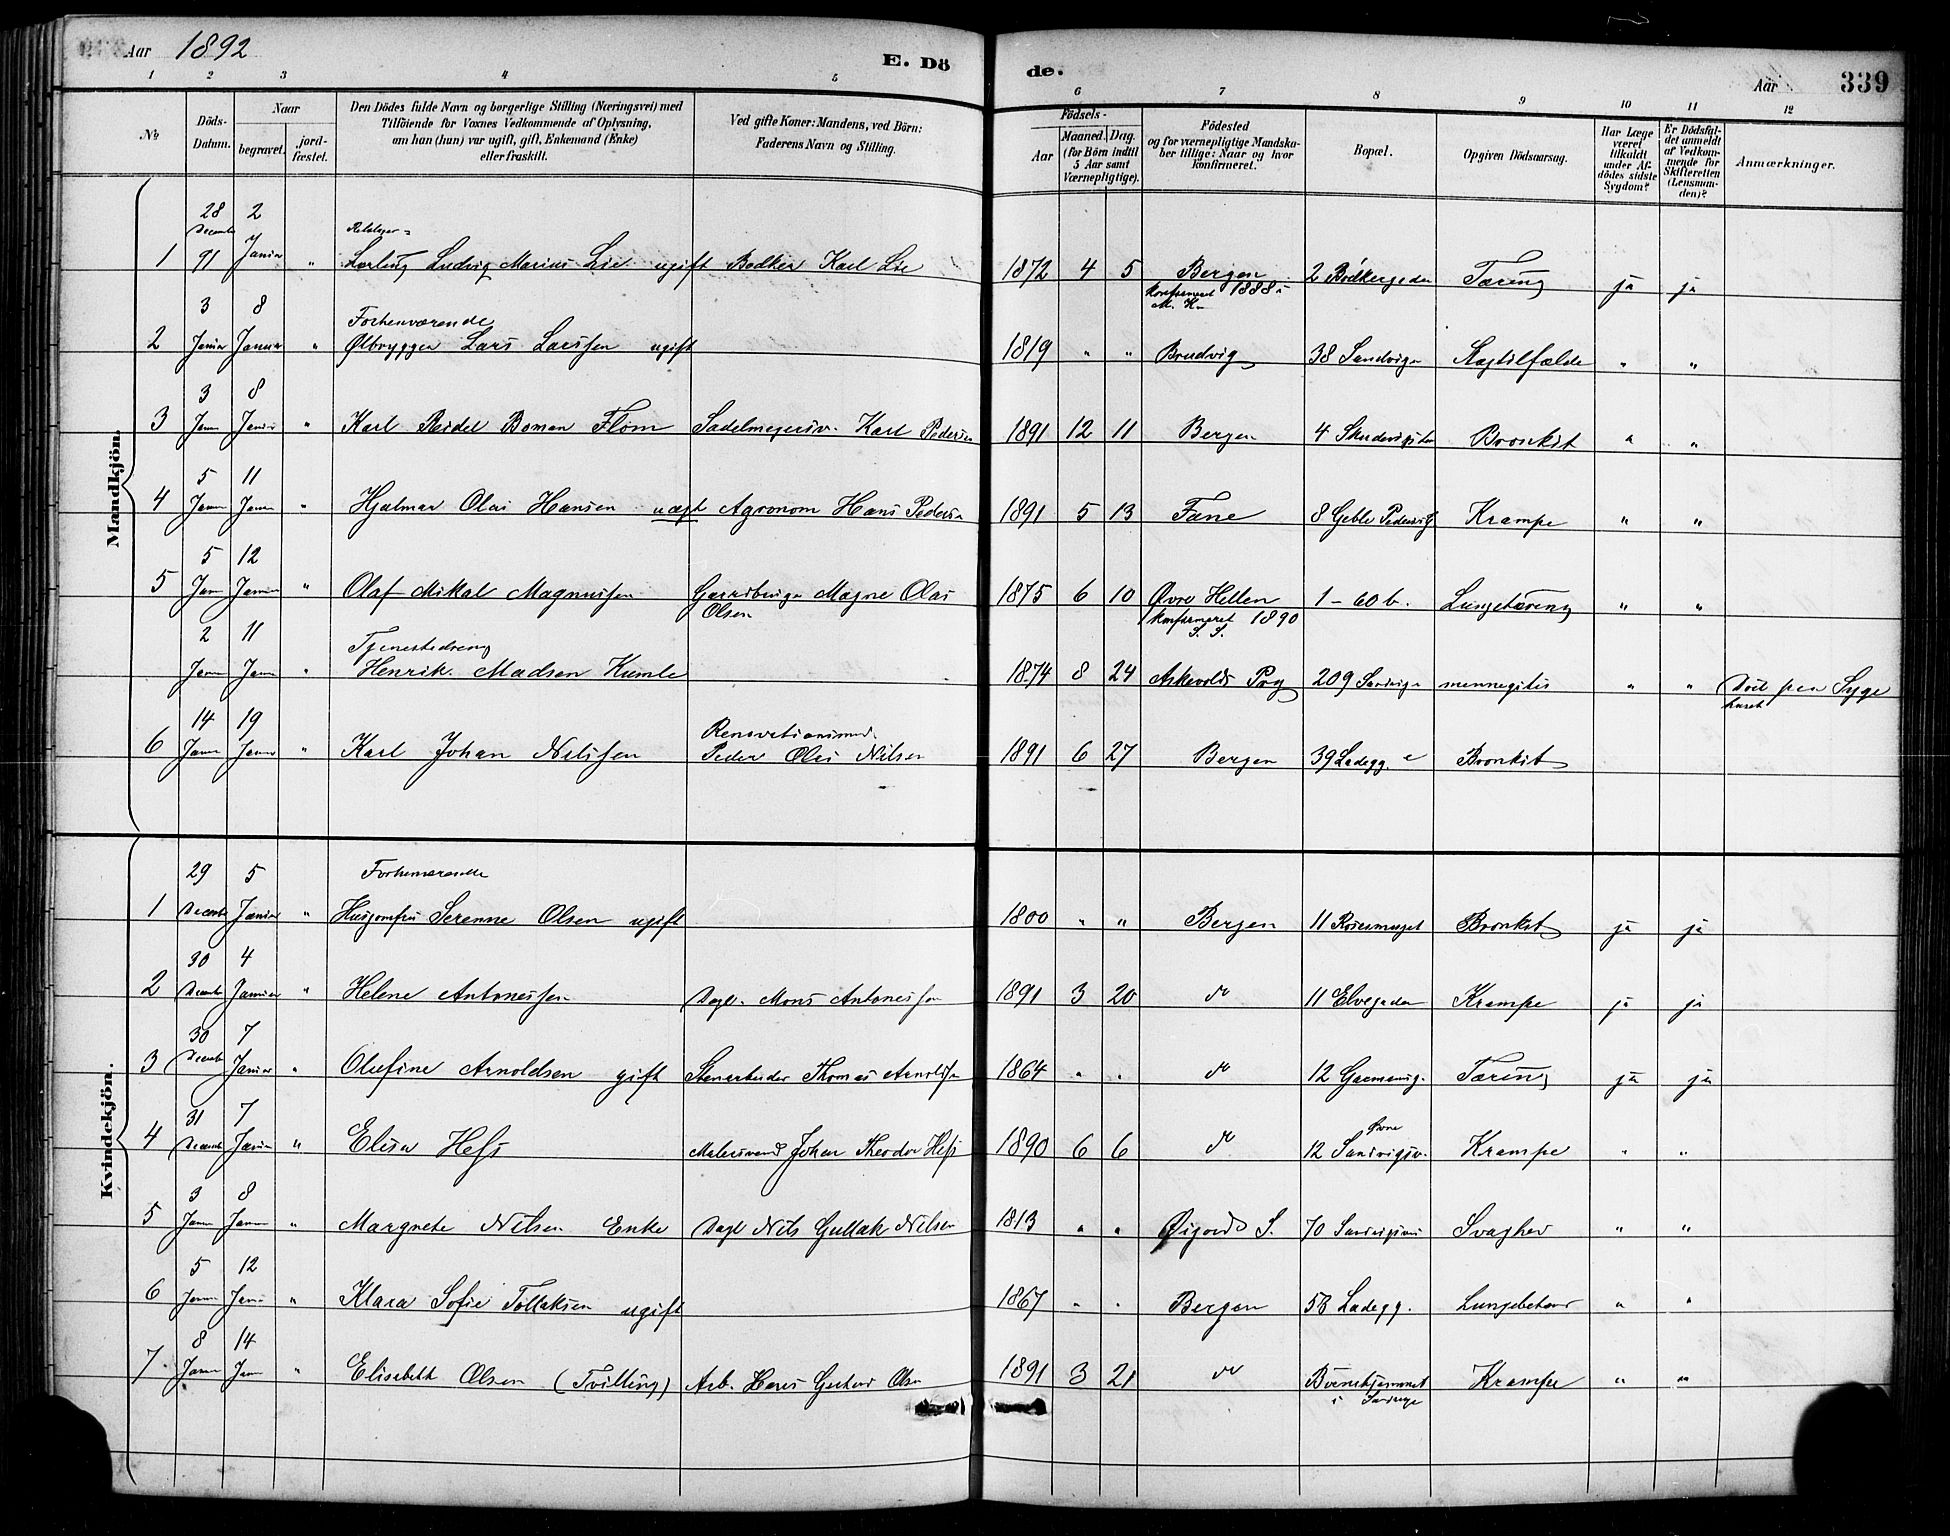 Aar 1892
E. Dö
de.
Aar
339
1 2 3 4 5 6 7 8 9 10 11 12
No
Döds-Datum.
Naar
begravet.
jord-fæstet.
Den Dödes fulde Navn og borgerlige Stilling (Næringsvei) med
Tilföiende for Voxnes Vedkommende af Oplysning,
om han (hun) var ugift, gift, Enkemand (Enke)
eller fraskilt.
Ved gifte Koner: Mandens, ved Börn:
Faderens Navn og Stilling.
Födsels-
Aar
Maaned. Dag.
(for Börn indtil
5 Aar samt
Værnepligtige).
Födested
og for værnepligtige Mandska-
ber tillige: Naar og hvor
konfirmeret.
Bopæl.
Opgiven Dödsaarsag.
Har Læge
været
tilkaldt
under Af-
dödes sidste
Sygdom?
Er Dödsfal-
det anmeldt
af Vedkom-
mende for
Skifteretten
(Lensman-
den)?
Anmærkninger.
Mandkjön.
1 28 December 91 2 Januar " Lærling Ludvig Marius Lie ugift Bødker Karl Lie 1872 4 5 Bergen 2 Bødkergaden Tæring ja ja
konfirmeret 1888 i
M. K.
Forhenværende
2 3 Januar 8 Januar " Ølbrygger Lars Larssen ugift 1819 " " Brudvig 38 Sandvigen Slagtilfælde " "
3 3 Janr 8 Januar " Karl Reidel Boman Flom Sadelmagersv. Karl Pedersen 1891 12 11 Bergen 4 Bronkit " "
4 5 Janr 11 Janr " Hjalmar Olai Hansen uægt Agronom Hans Pedersen 1891 5 13 Fane 8 Geble Pedersg Krampe " "
5 5 Janr 12 Januar " Olaf Mikal Magnussen Magne Olai 1875 6 10 Øvre Hellen 1-60 b. Lungetæring " "
Olsen
konfirmeret 1890
S. S.
Tjenestedreng
2 Janr 11 Janr " Henrik Madsen Kumle 1874 8 24 Askevolds Præg 209 Sandvigen mennegitis " " Död paa Syge
huset
Renovationsmd.
6 14 Janr 19 Januar " Karl Johan Nilssen Peder Olai Nilsen 1891 6 27 Bergen 39 Ladegg. Bronkit
Kvindekjön.
Forhenværende
1 29 December 5 Januar " Husjomfru Serenne Olsen ugift 1800 " " Bergen 11 Bronkit ja ja
2 30 December 4 Januar " Helene Antonessen Dagl. Mons Antonessen 1891 3 20 do 11 Elvegaden Krampe ja ja
3 30 December 7 Januar " Olufine Arnoldsen gift Stenarbeider Thomas Arnoldsen 1864 " " do 12 Tæring ja ja
4 31 December 7 Januar " Elisa Hess Malersvend Johan Theodor Hess 1890 6 6 do 12 Øvre Sandvigsv. Krampe " "
5 3 Janr 8 Janr " Margrete Nilsen Enke Dagl Nils Gullak Nilsen 1813 " " Øigards S. 70 Sandvigsvei Svaghed " "
6 5 Janr 12 Janr " Klara Sofie Tollaksen ugift 1867 " " Bergen 58 Ladegg. Lungebetænd " "
7 8 Janr 14 Janr " Elisabeth Olsen (Tvilling) Arb. Hans Olsen 1891 3 21 do Børnehjemmet Krampe " "
i Sandvigen